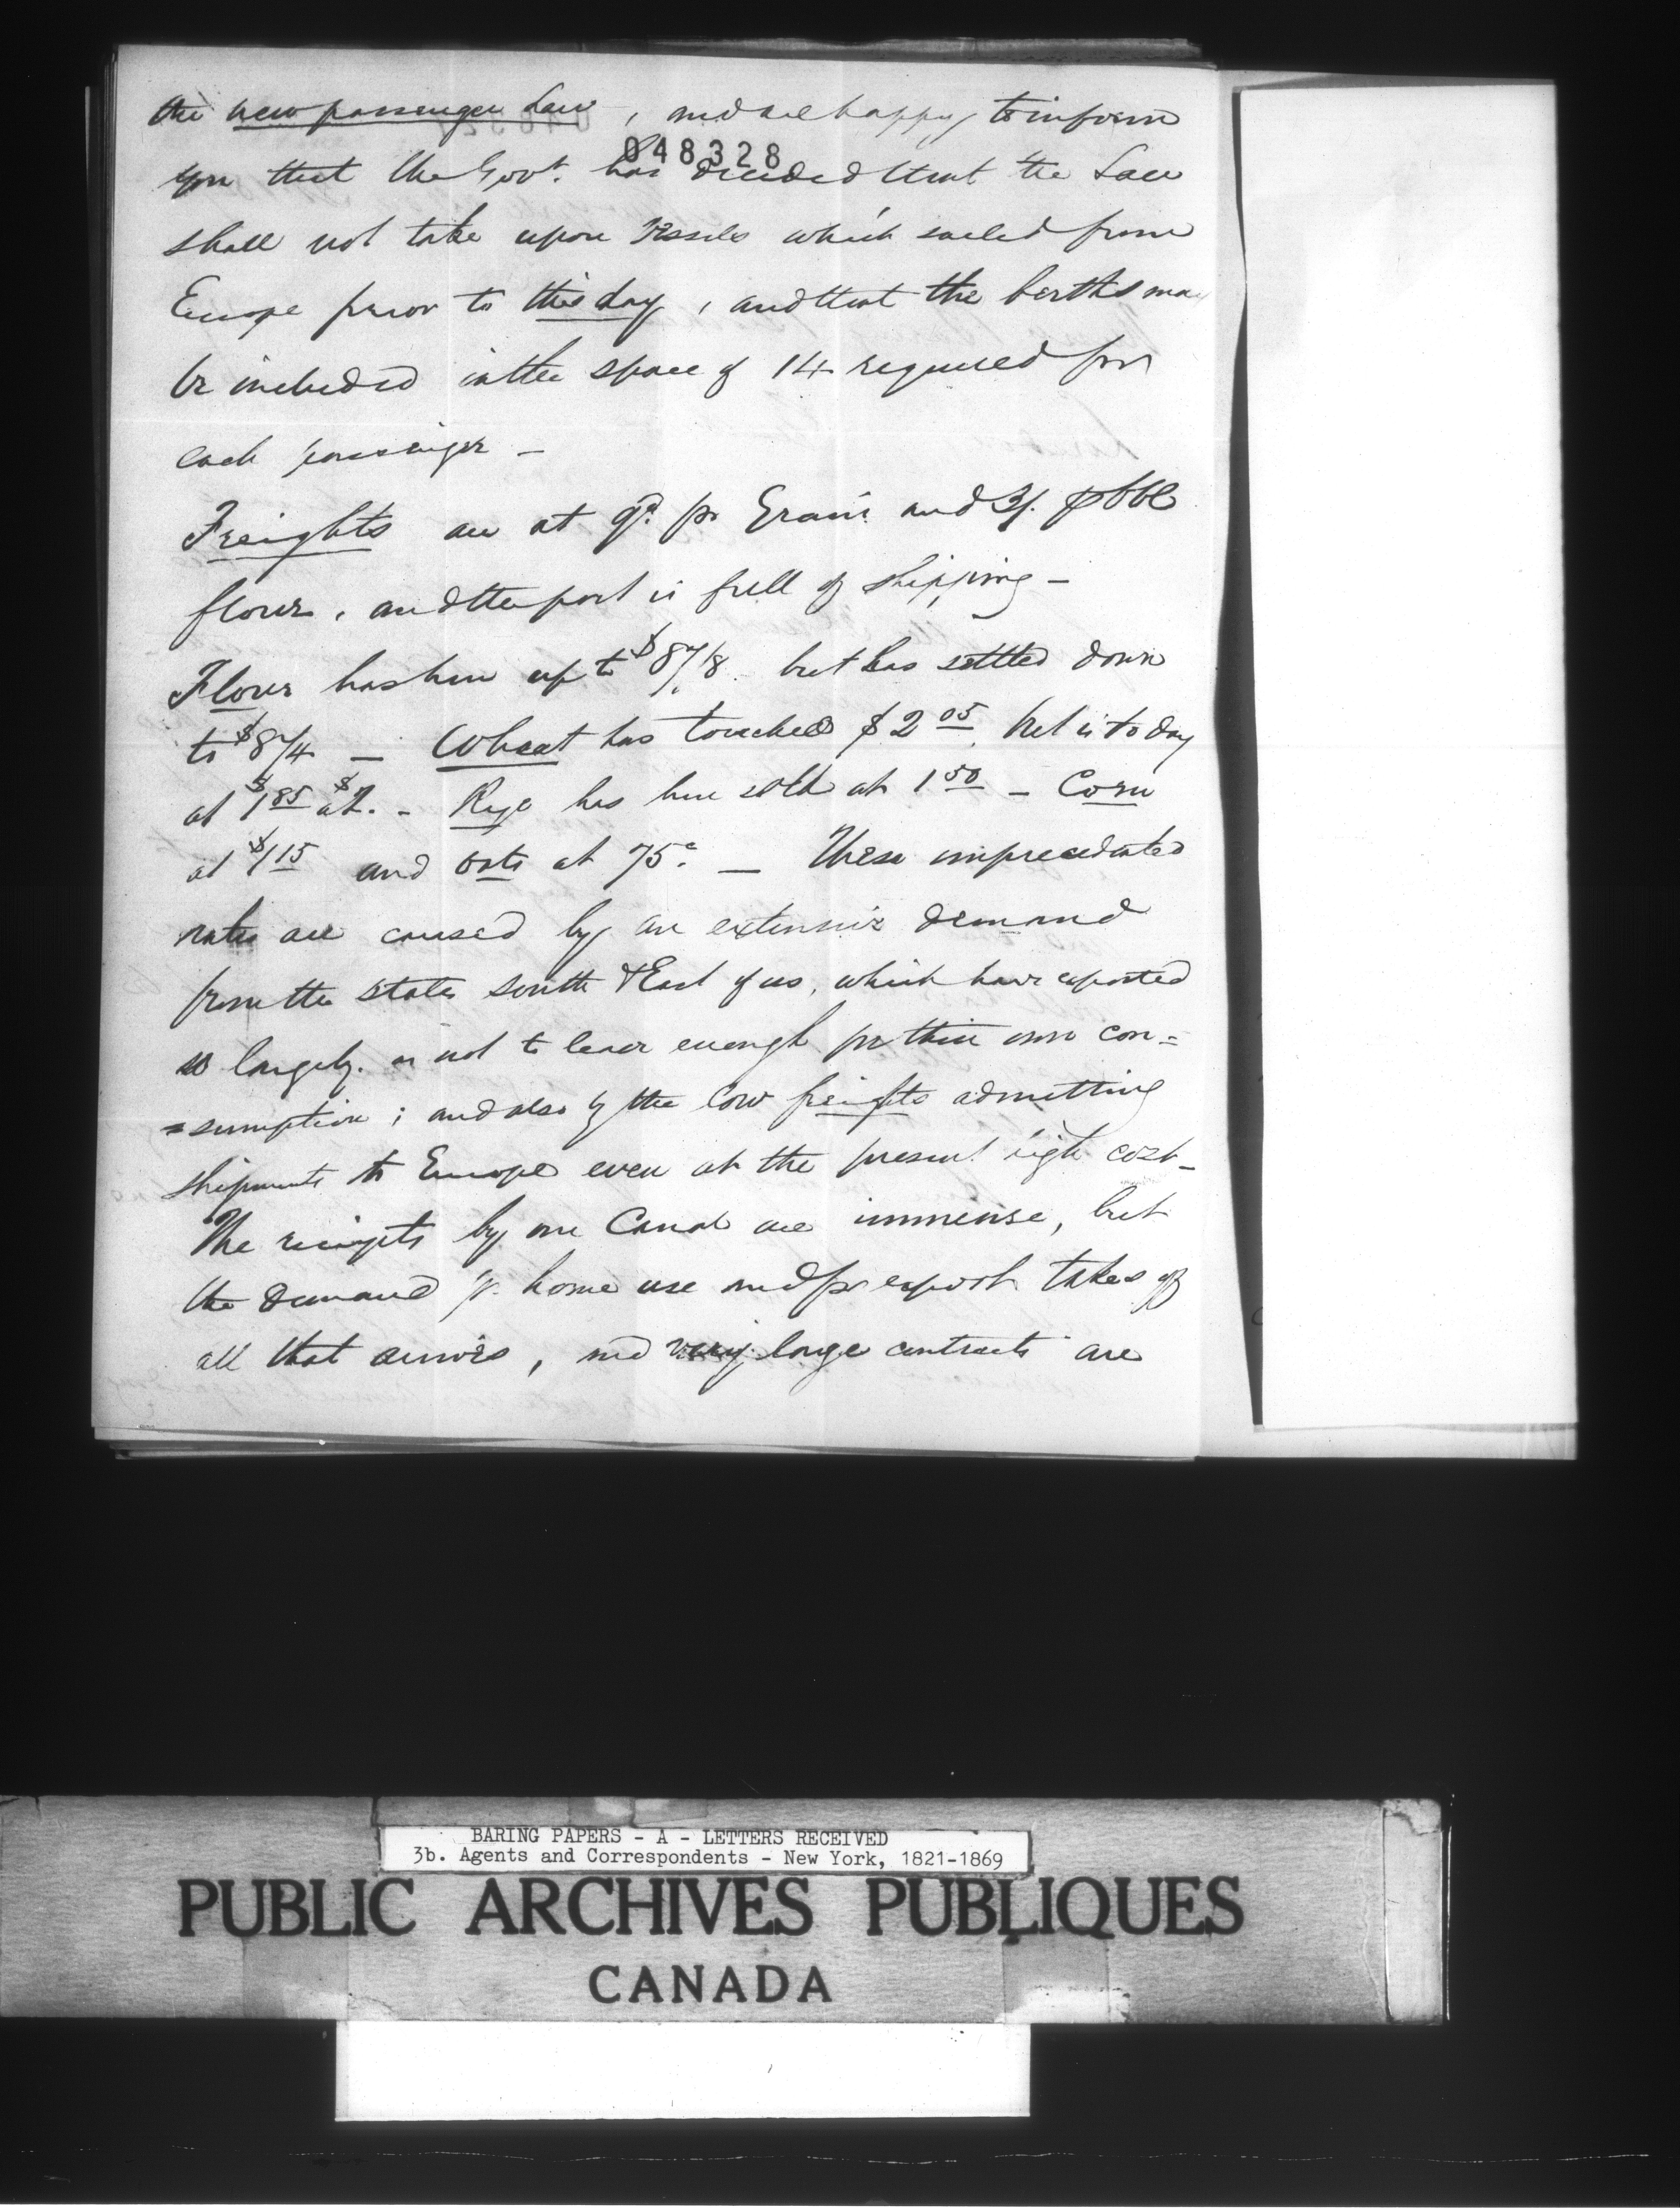 the new passenger Law, and are happy to inform
048328
you that the Govt. has decided that the Law
shall not take upon Vessels which sailed from
Europe prior to this day, and that the berths may
be included in the space of 14 required for
each passenger -
Freights are at 9d. pr Grain and 3/. p bbl
flour, and the port is full of shipping -
Flour has been up to $87/8 but has settled down
to $8/4 - Wheat has touched $2 05, but is to day
at $1 85 a $2. - Rye has been sold at 1 50 - Corn
at $1 15 and oats at 75c. - These unprecedented
rates are caused by an extensive demand
from the states south & East of us, which have exported
so largely as not to leave enough for their own con=
=sumption; and also by the low freights admitting
shipments to Europe even at the present high cost -
The receipts by our Canal are immense, but
the demand for home use and for export takes off
all that arrives, and very large contracts are
BARING PAPERS - A - LETTERS RECEIVED
3b. Agents and Correspondents - New York, 1821-1869
PUBLIC ARCHIVES PUBLIQUES
CANADA